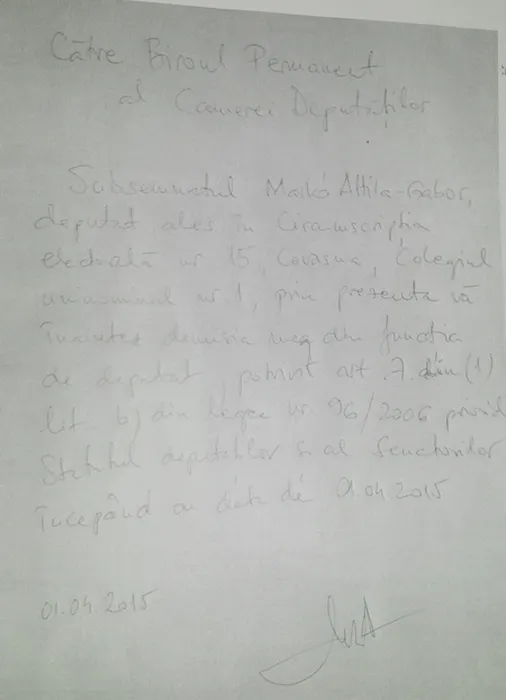 Către Biroul Permanent
al Camerei Deputaților
Subsemnatul Markó Attila-Gabor,
deputat ales în Circumscripția
electorală nr 15, Covasna, Colegiul
uninominal nr. 1, prin prezenta vă
înaintez demisia mea din funcția
de deputat, potrivit art. 7. din (1)
lit b) din Legea nr. 96/2006 privind
Statutul deputaților și al senatorilor
începând cu data de 01.04.2015
01.04.2015